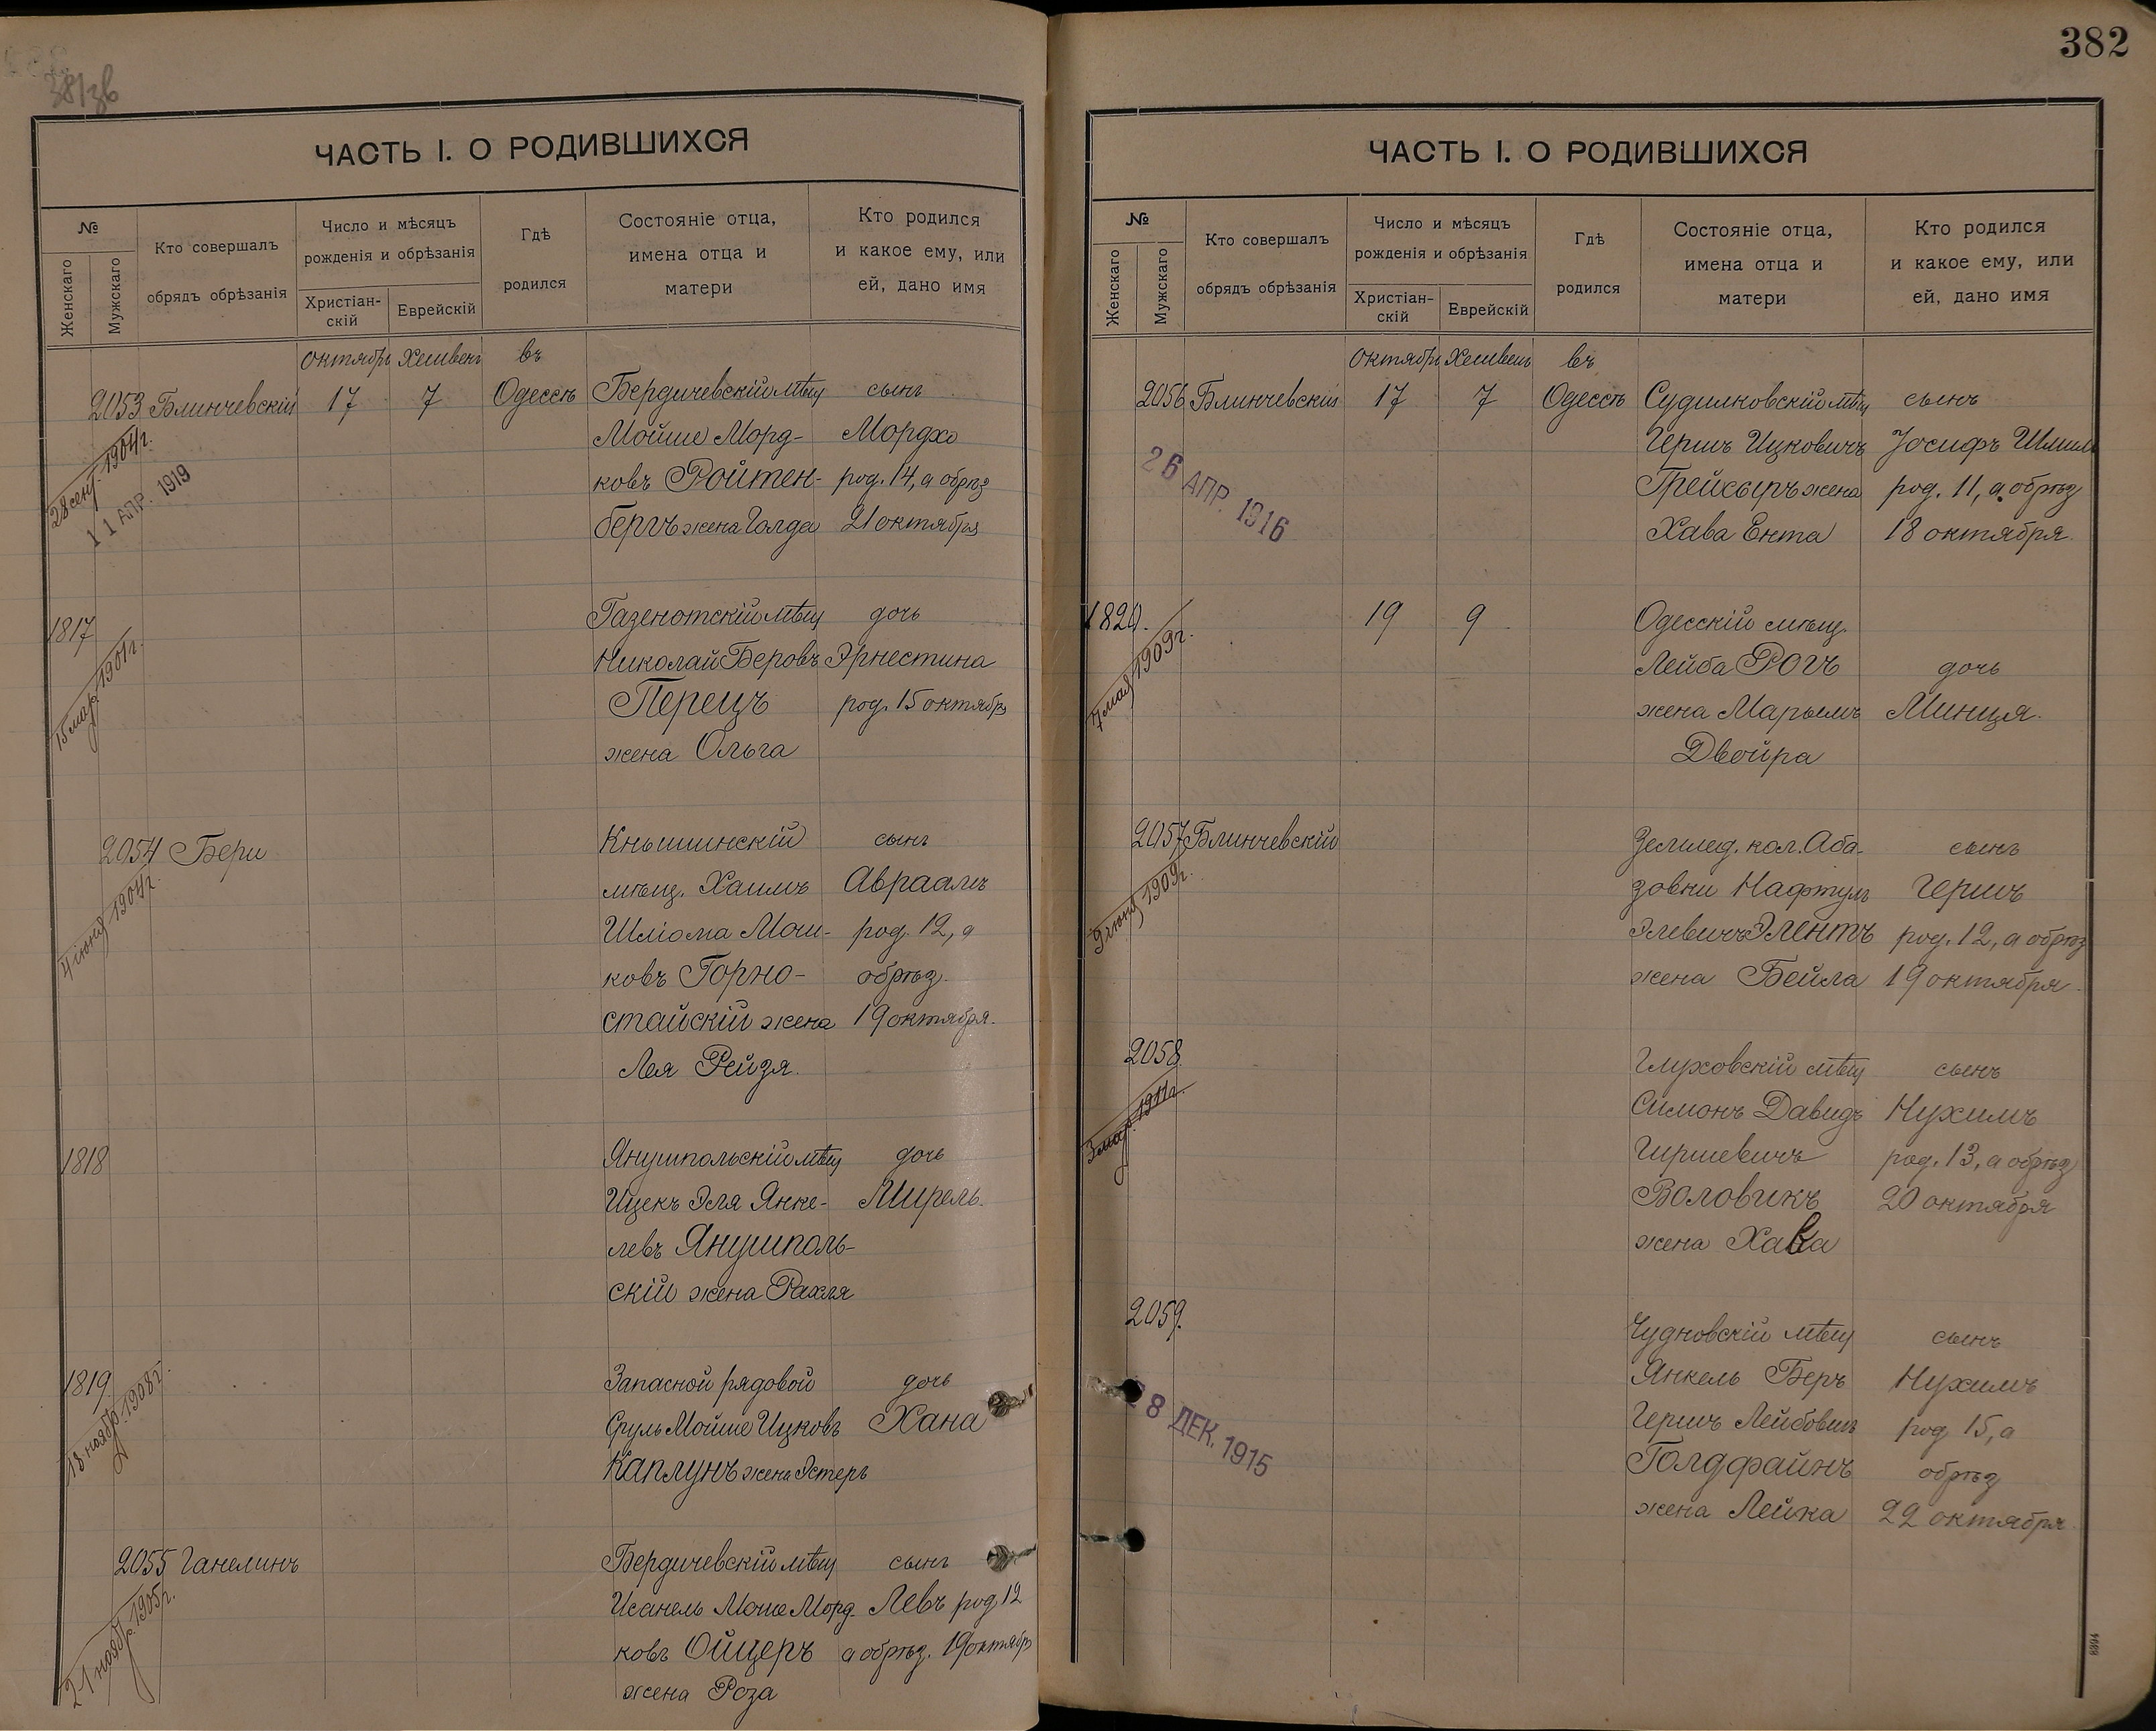 38/зв
ЧАСТЬ I. О РОДИВШИХСЯ
№
Женскаго
Мужскаго
Кто совершалъ
обрядъ обрѣзанія
Число и мѣсяцъ
рожденія и обрѣзанія
Христіан-
скій
Еврейскій
Гдѣ
родился
Состояніе отца,
имена отца и
матери
Кто родился
и какое ему, или
ей, дано имя
октябрь Хешвенъ въ
2053 Блинчевскій 17 7 Одессѣ Бердичевскій мѣщ сынъ
Мойше Морд- Мордхо
ковъ Ройтен- род. 14, а обрѣз
бергъ жена Голда 21 октября
28 сент. 1904 г.
11 АПР. 1919
1817 Газенотскій мѣщ дочь
Николай Беровъ Эрнестина
Перецъ род. 15 октябр
жена Ольга
15 мар. 1901 г.
2054 Бери Кнышинскій сынъ
мѣщ. Хаимъ Авраамъ
Шліома Мош- род. 12, а
ковъ Горно- обрѣз.
стайскій жена 19 октября.
Лея Рейзя.
4 іюня 1904 г.
1818 Янушпольскій мѣщ дочь
Ицекъ Эля Янке- Мирель.
левъ Янушполь-
скій жена Рахля
1819 Запасной рядовой дочь
Сруль Мойше Ицковъ Хана
Каплунъ жена Эстеръ
18 ноябр. 1908 г.
2055 Ганелинъ Бердичевскій мѣщ сынъ
Исанель Моше Морд- Левъ род 12
ковъ Ойцеръ а обрѣз. 19 октябр
жена Роза
21 ноябр. 1905 г.
382
ЧАСТЬ I. О РОДИВШИХСЯ
№
Женскаго
Мужскаго
Кто совершалъ
обрядъ обрѣзанія
Число и мѣсяцъ
рожденія и обрѣзанія
Христіан-
скій
Еврейскій
Гдѣ
родился
Состояніе отца,
имена отца и
матери
Кто родился
и какое ему, или
ей, дано имя
октябрь Хешвенъ въ
2056 Блинчевскій 17 7 Одессѣ Судилковскій мѣщ сынъ
Гершъ Ицковичъ Іосифъ Шмилъ
Трейсыръ жена род. 11, а обрѣз
Хава Ента 18 октября.
26 АПР. 1916
1820. 19 9 Одесскій мѣщ.
Лейба Рогъ дочь
жена Марьемъ Минця.
Двойра
7 мая 1909 г.
2057 Блинчевскій Землед. кол. Аба- сынъ
зовки Нафтулъ Гершъ
Элевичъ Элентъ род. 12, а обрѣз
жена Бейла 19 октября.
9 іюня 1909 г.
2058 Глуховскій мѣщ сынъ
Симонъ Давидъ Нухимъ
Гиршевичъ род. 13, а обрѣз
Воловикъ 20 октября
жена Хава
3 мар. 1911 г.
2059. Чудновскій мѣщ сынъ
Янкель Беръ Нухимъ
Гершъ Лейбовичъ род 15, а
Голдфайнъ обрѣз
жена Лейка 22 октября.
8 ДЕК. 1915